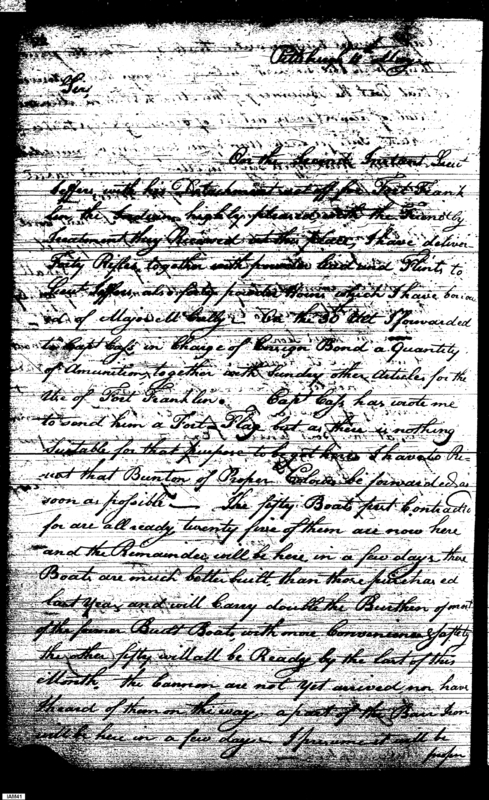 Pittsburgh 4th May
Sir,
On the Second Instant Lieut
Jeffers with his Detachment set off for Fort Frank
lin, the Indians highly pleased with the Friendly
Treatment they Received at this place I have deliver
Forty Rifles together with powder lead and Flints, to
Lieut Jeffers, also forty powder Horns which I have borrow
ed of Major McCully On the 30th Ult I forwarded
to Capt Cass in Charge of Ensign Bond a Quantity
of Amunition, together with Sundry other Articles for the
Use of Fort Franklin. Capt Cass has wrote me
to send him a Fort Flag but as there is nothing
Suitable for that purpose to be got here I have to Re-
uest that Bunton of Proper Colours be forwarded as
soon as possible — The fifty Boats first Contracted
for are all ready, twenty five of them are now here
and the Remainder will be here in a few days these
Boats are much better built than those purchased
last Year, and will Carry double the Burthen of most
of the former Built Boats, with more Convenience & safety
the other fifty will all be Ready by the last of this
Month, the Cannon are not Yet arrived nor have
I heard of them on the way, a part of the Barr Iron
will be here in a few days I presume it will be